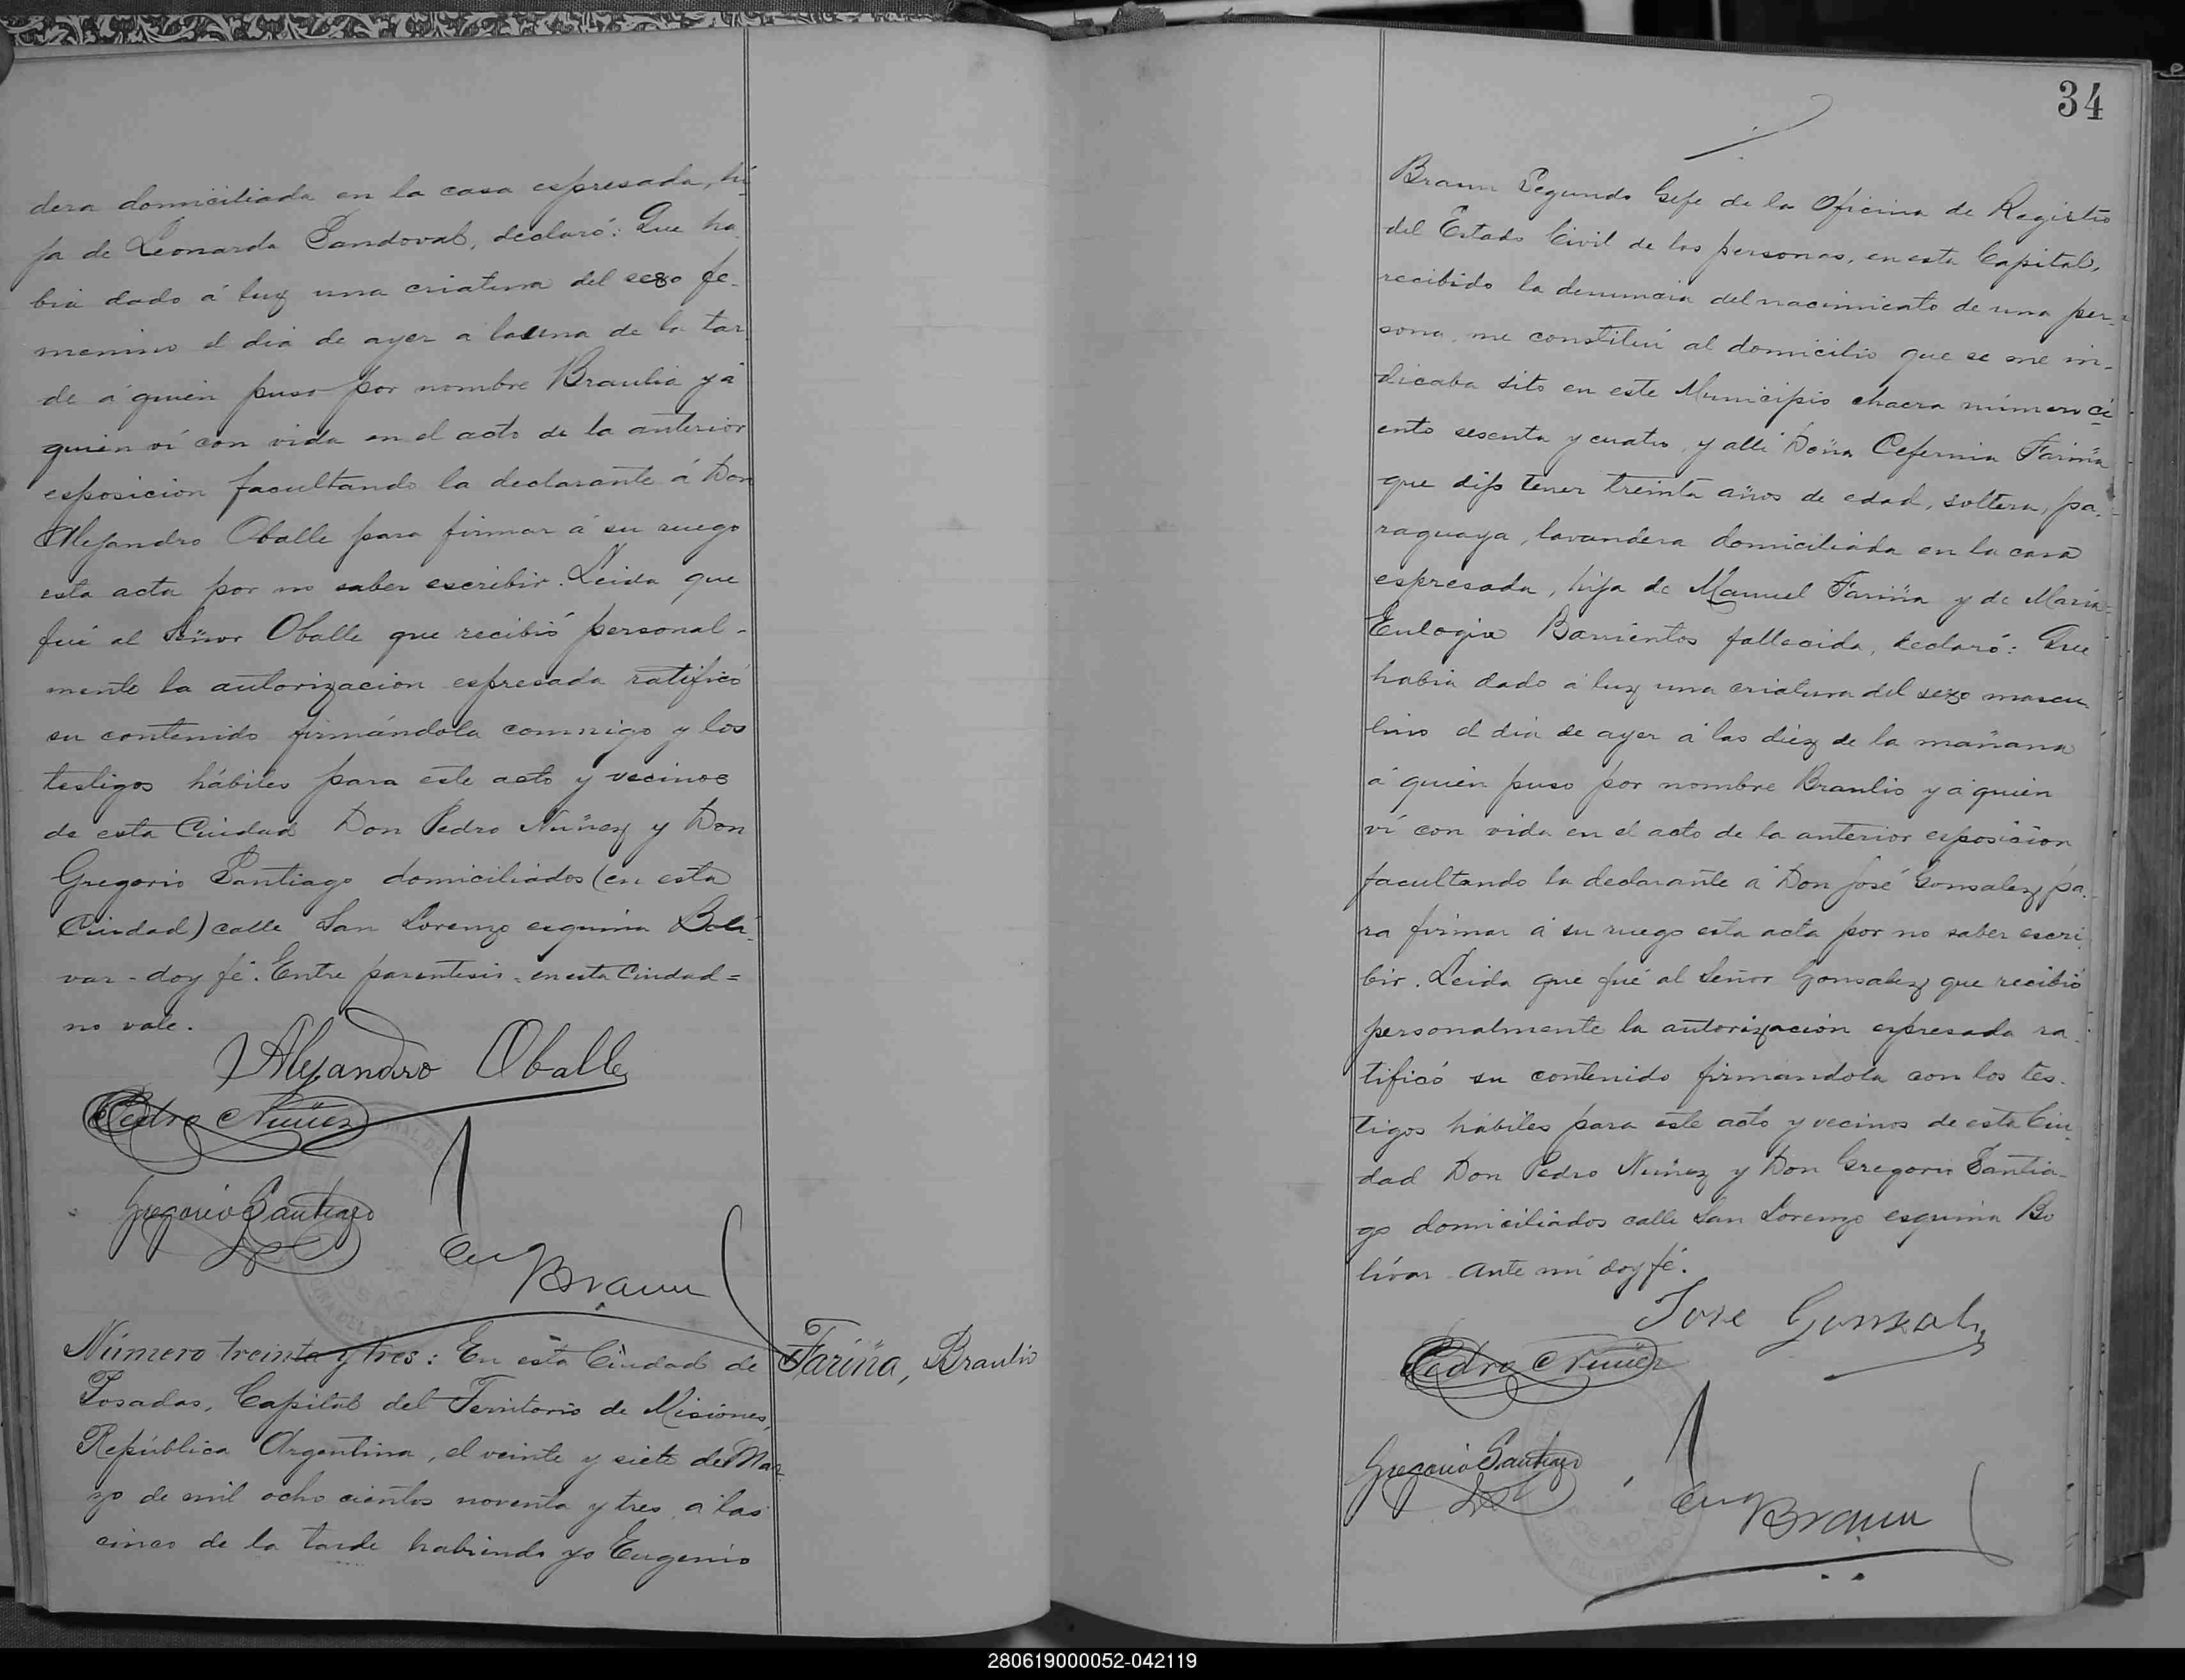 dera domiciliada en la casa espresada, hi-
ja de Leonarda Sandoval, declaró: Que ha
bia dado á luz una criatura del sexo fe-
menino el dia de ayer a la una de la tar
de á quien puso por nombre Braulia y á
quien ví con vida en el acto de la anterior
esposicion facultando la declarante á Don
Alejandro Oballe para firmar á su ruego
esta acta por no saber escribir. Leida que
fué al Señor Oballe que recibió personal-
mente la autorizacion espresada ratificó
su contenido firmándola conmigo y los
testigos hábiles para este acto y vecinos
de esta Ciudad Don Pedro Nuñez y Don
Gregorio Santiago domiciliados (en esta
Ciudad) calle San Lorenzo esquina Boli-
var - doy fé. Entre parentesis - en esta Ciudad =
no vale.
Alejandro Oballe
Pedro Nuñez
Gregorio Santiago
Eug Braun
Número treinta y tres: En esta Ciudad de
Fariña, Braulio
Posadas, Capital del Territorio de Misiones,
República Argentina, el veinte y siete de Mar-
zo de mil ocho cientos noventa y tres, a las
cinco de la tarde habiendo yo Eugenio
34
Braun Segundo Gefe de la Oficina de Registro
del Estado Civil de las personas, en esta Capital,
recibido la denuncia del nacimiento de una per-
sona, me constituí al domicilio que se me in-
dicaba sito en este Municipio chacra número ci
ento sesenta y cuatro, y alli Doña Ceferina Fariña
que dijo tener treinta años de edad, soltera, pa-
raguaya, lavandera domiciliada en la casa
espresada, hija de Manuel Fariña y de Maria
Eulogia Barrientos fallecida, declaró: Que
habia dado á luz una criatura del sexo mascu
lino el dia de ayer á las diez de la mañana
á quien puso por nombre Braulio y á quien
ví con vida en el acto de la anterior esposicion
facultando la declarante á Don José Gonsalez pa-
ra firmar á su ruego esta acta por no saber escri-
bir. Leida que fué al Señor Gonsalez que recibió
personalmente la autorizacion espresada ra-
tificó su contenido firmandola con los tes-
tigos hábiles para este acto y vecinos de esta Ciu-
dad Don Pedro Nuñez y Don Gregorio Santia-
go domiciliados calle San Lorenzo esquina Bo
lívar ante mi doy fé.
Jose Gonzalz
Pedro Nuñez
Gregorio Santiago
Eug Braun
280619000052-042119